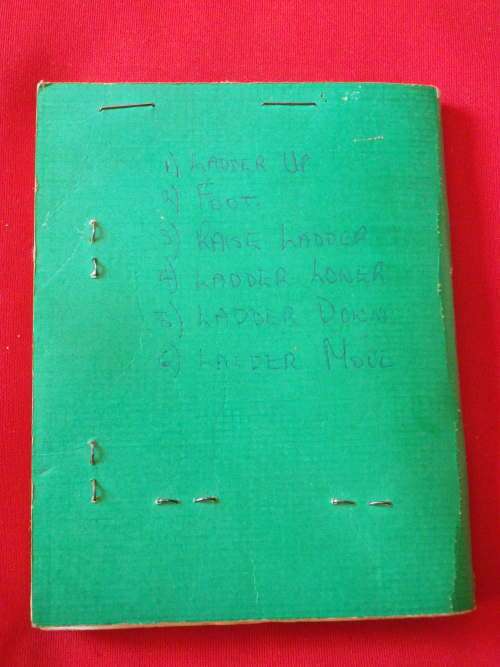 1) LADDER UP
2) FOOT
3) RAISE LADDER
4) LADDER LOWER
5) LADDER DOWN
6) LADDER MOVE